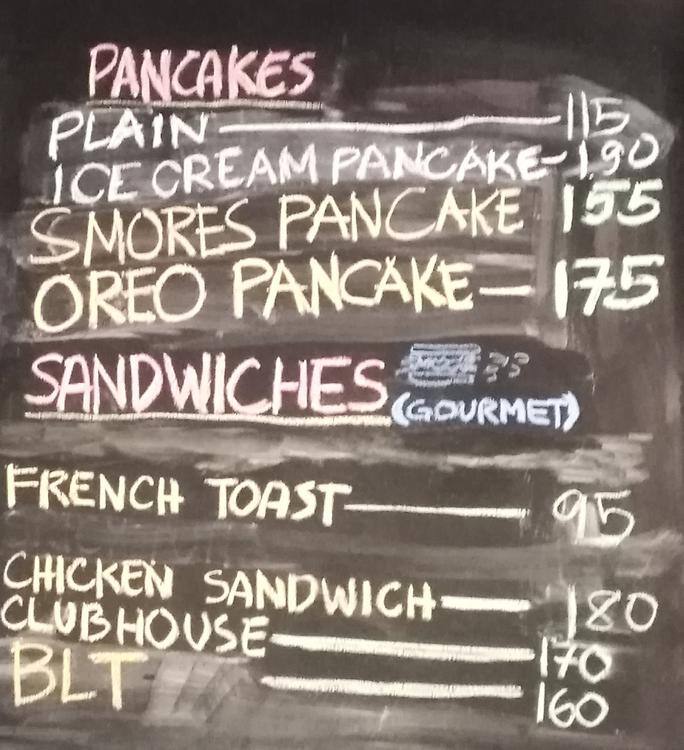 PANCAKES
PLAIN 115
ICE CREAM PANCAKE 190
SMORES PANCAKE 155
OREO PANCAKE 175
SANDWICHES (GOURMET)
FRENCH TOAST 95
CHICKEN SANDWICH 180
CLUBHOUSE 170
BLT 160